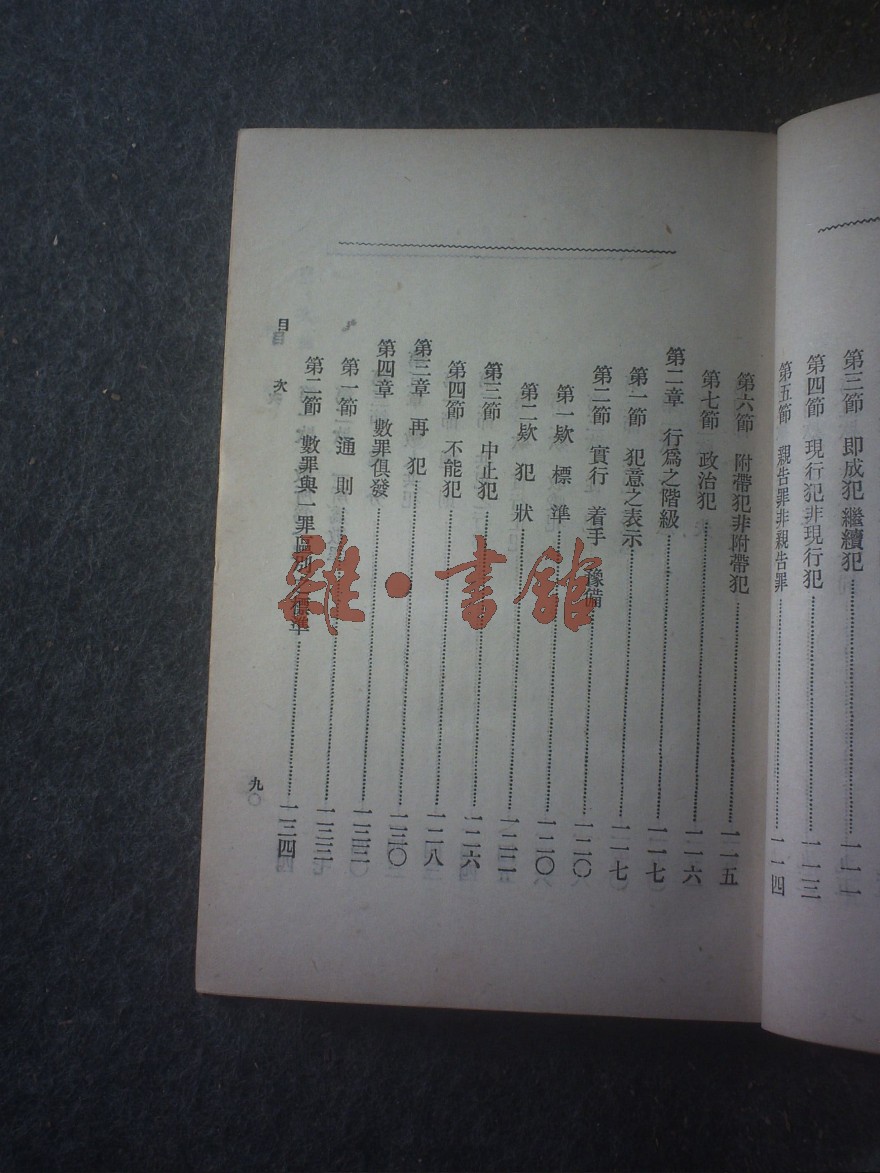 第三節 即成犯 繼續犯……一一一
第四節 現行犯非現行犯……一一三
第五節 親告罪非親告罪……一一四
第六節 附帶犯非附帶犯……一一五
第七節 政治犯……一一六
第二章 行爲之階級……一一七
第一節 犯意之表示……一一七
第二節 實行 着手 豫備……一二〇
第一欵 標 準……一二〇
第二欵 犯 狀……一二二
第三節 中止犯……一二六
第四節 不能犯……一二八
第三章 再 犯……一三〇
第四章 數罪俱發……一三三
第一節 通 則……一三三
第二節 數罪與一罪區別之標準……一三四
目 次
九
雜·書館